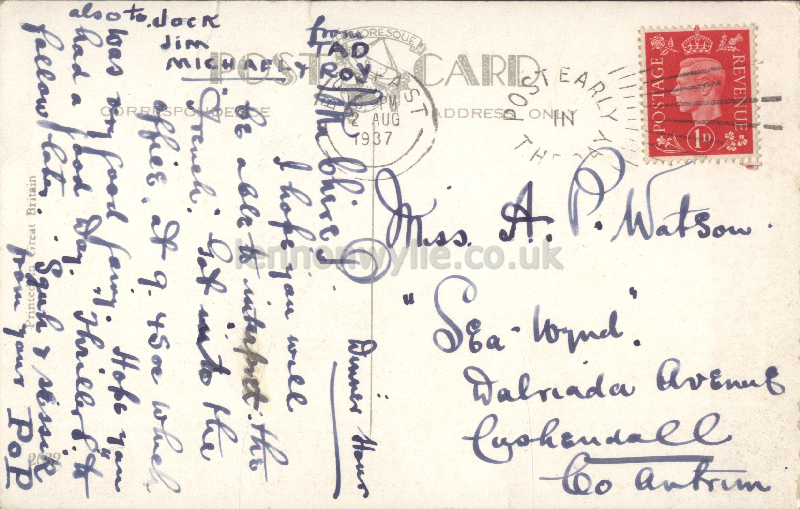 POST CARD
CORRESPONDENCE
ADDRESS ONLY
BELFAST
PM
2 AUG
1937
POST EARLY
IN
TH
POSTAGE
REVENUE
1D
Miss. A. P. Watson.
"Sea-Wynd".
Dalriada Avenue
Cushendall
Co Antrim
Dinner Hour
I hope you will
be able to interpret the
French. Got into the
office at 9.45 which
was my good fairy. Hope you
had a good day.
follow later.
from your POP
also to Jock
Jim
MICHAEL &
from
TAD
ROY
Printed in Great Britain
lennonwylie.co.uk